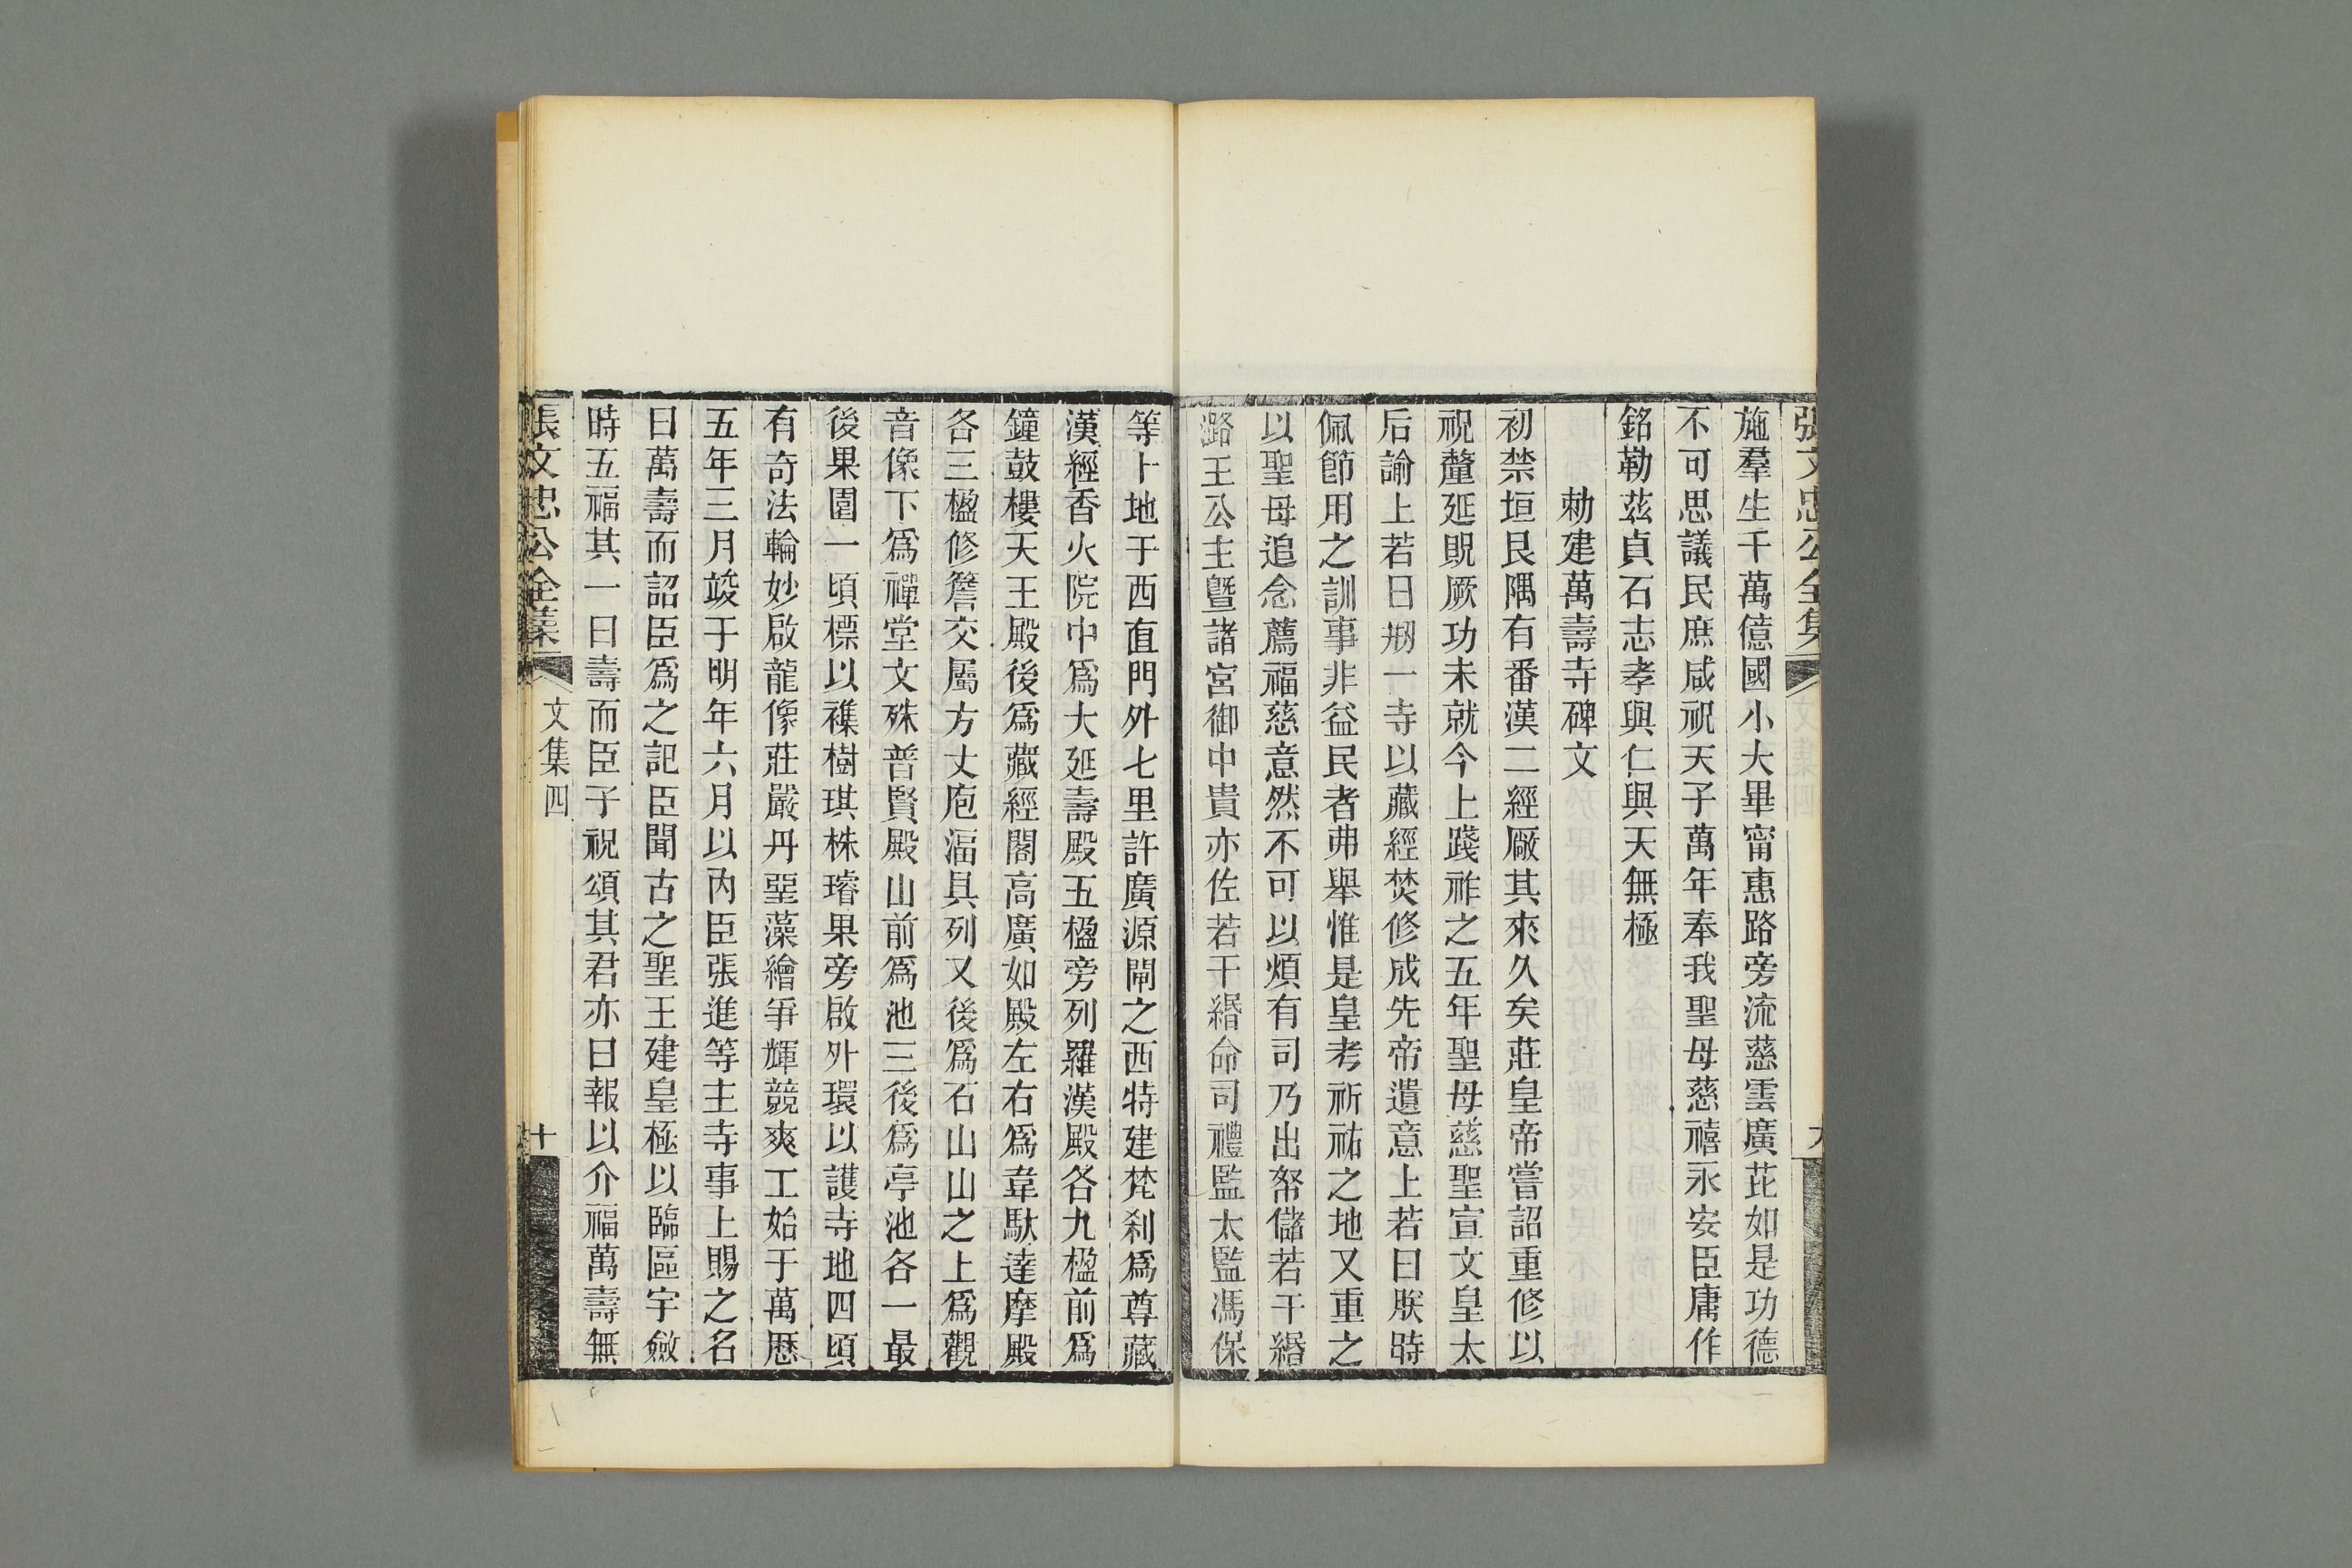 張文忠公全集
九
施羣生千萬億國小大畢甯惠路旁流慈雲廣芘如是功德
不可思議民庶咸祝天子萬年奉我聖母慈禧永安臣庸作
銘勒茲貞石志孝與仁與天無極
勅建萬壽寺碑文
初禁垣艮隅有番漢二經厰其來久矣莊皇帝嘗詔重修以
祝釐延貺厥功未就今上踐祚之五年聖母慈聖宣文皇太
后諭上若曰刱一寺以藏經焚修成先帝遺意上若曰朕時
佩節用之訓事非益民者弗舉惟是皇考祈祐之地又重之
以聖母追念薦福慈意然不可以煩有司乃出帑儲若干緡
潞王公主暨諸宮御中貴亦佐若干緡命司禮監太監馮保
等卜地于西直門外七里許廣源閘之西特建梵刹爲尊藏
漢經香火院中爲大延壽殿五楹旁列羅漢殿各九楹前爲
鐘鼓樓天王殿後爲藏經閣高廣如殿左右爲韋馱達摩殿
各三楹修簷交屬方丈庖湢具列又後爲石山山之上爲觀
音像下爲禪堂文殊普賢殿山前爲池三後爲亭池各一最
後果園一頃標以襍樹琪株璿果旁啟外環以護寺地四頃
有奇法輪妙啟龍像莊嚴丹堊藻繪爭輝競爽工始于萬厯
五年三月竣于明年六月以內臣張進等主寺事上賜之名
曰萬壽而詔臣爲之記臣聞古之聖王建皇極以臨區宇斂
時五福其一曰壽而臣子祝頌其君亦曰報以介福萬壽無
張文忠公全集
文集四
十